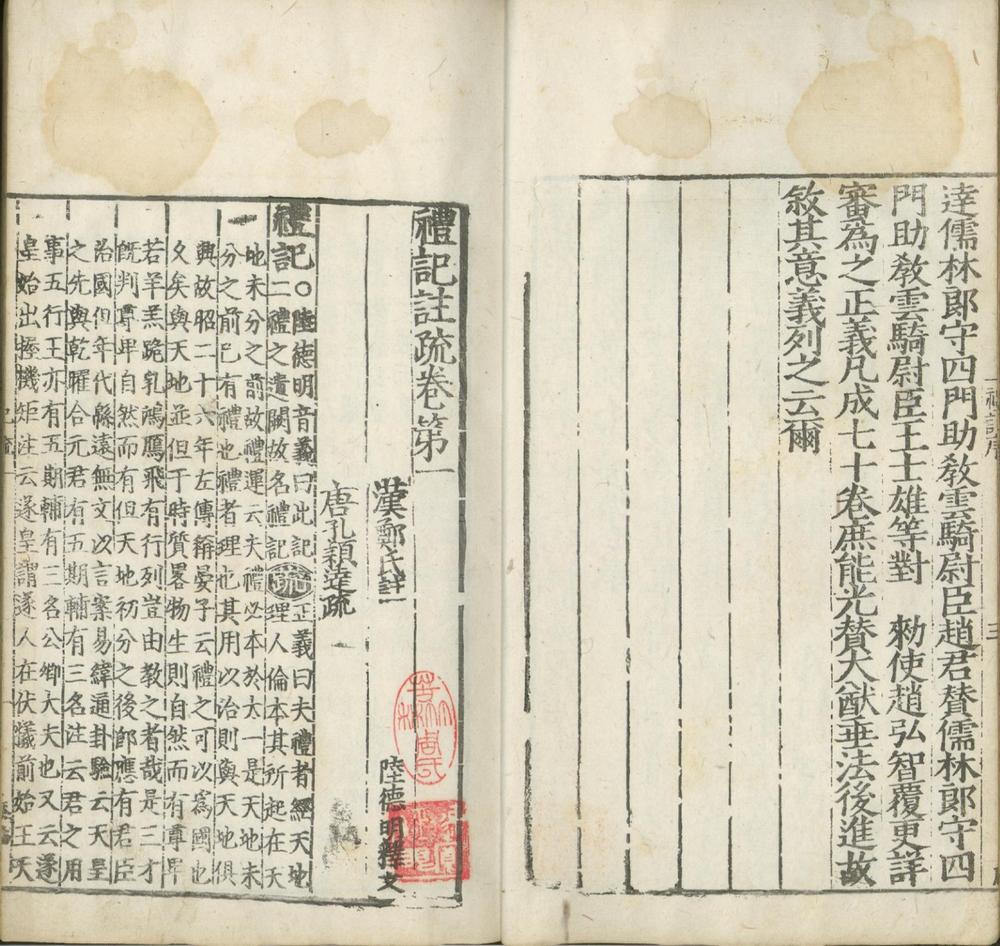 達儒林郎守四門助教雲騎尉臣趙君贊儒林郎守四
門助教雲騎尉臣王士雄等對　勑使趙弘智覆更詳
審為之正義凡成七十卷庶能光贊大猷垂法後進故
敘其意義列之云爾
禮記註疏卷第一
漢鄭氏註
陸德明釋文
唐孔穎達疏
禮記○陸德明音義曰此記
二禮之遺闕故名禮記
疏
正義曰夫禮者經天地
理人倫本其所起在天
地未分之前故禮運云夫禮必本於大一是天地未
分之前已有禮也禮者理也其用以治則與天地俱
興故昭二十六年左傳稱晏子云禮之可以為國也
久矣與天地並但于時質畧物生則自然而有尊卑
若羊羔跪乳鴻鴈飛有行列豈由教之者哉是三才
旣判尊卑自然而有但天地初分之後即應有君臣
治國但年代緜遠無文以言案易緯通卦驗云天皇
之先與乾曜合元君有五期輔有三名注云君之用
事五行王亦有五期輔有三名公卿大夫也又云遂
皇始出握機矩注云遂皇謂遂人在伏犧前始王天